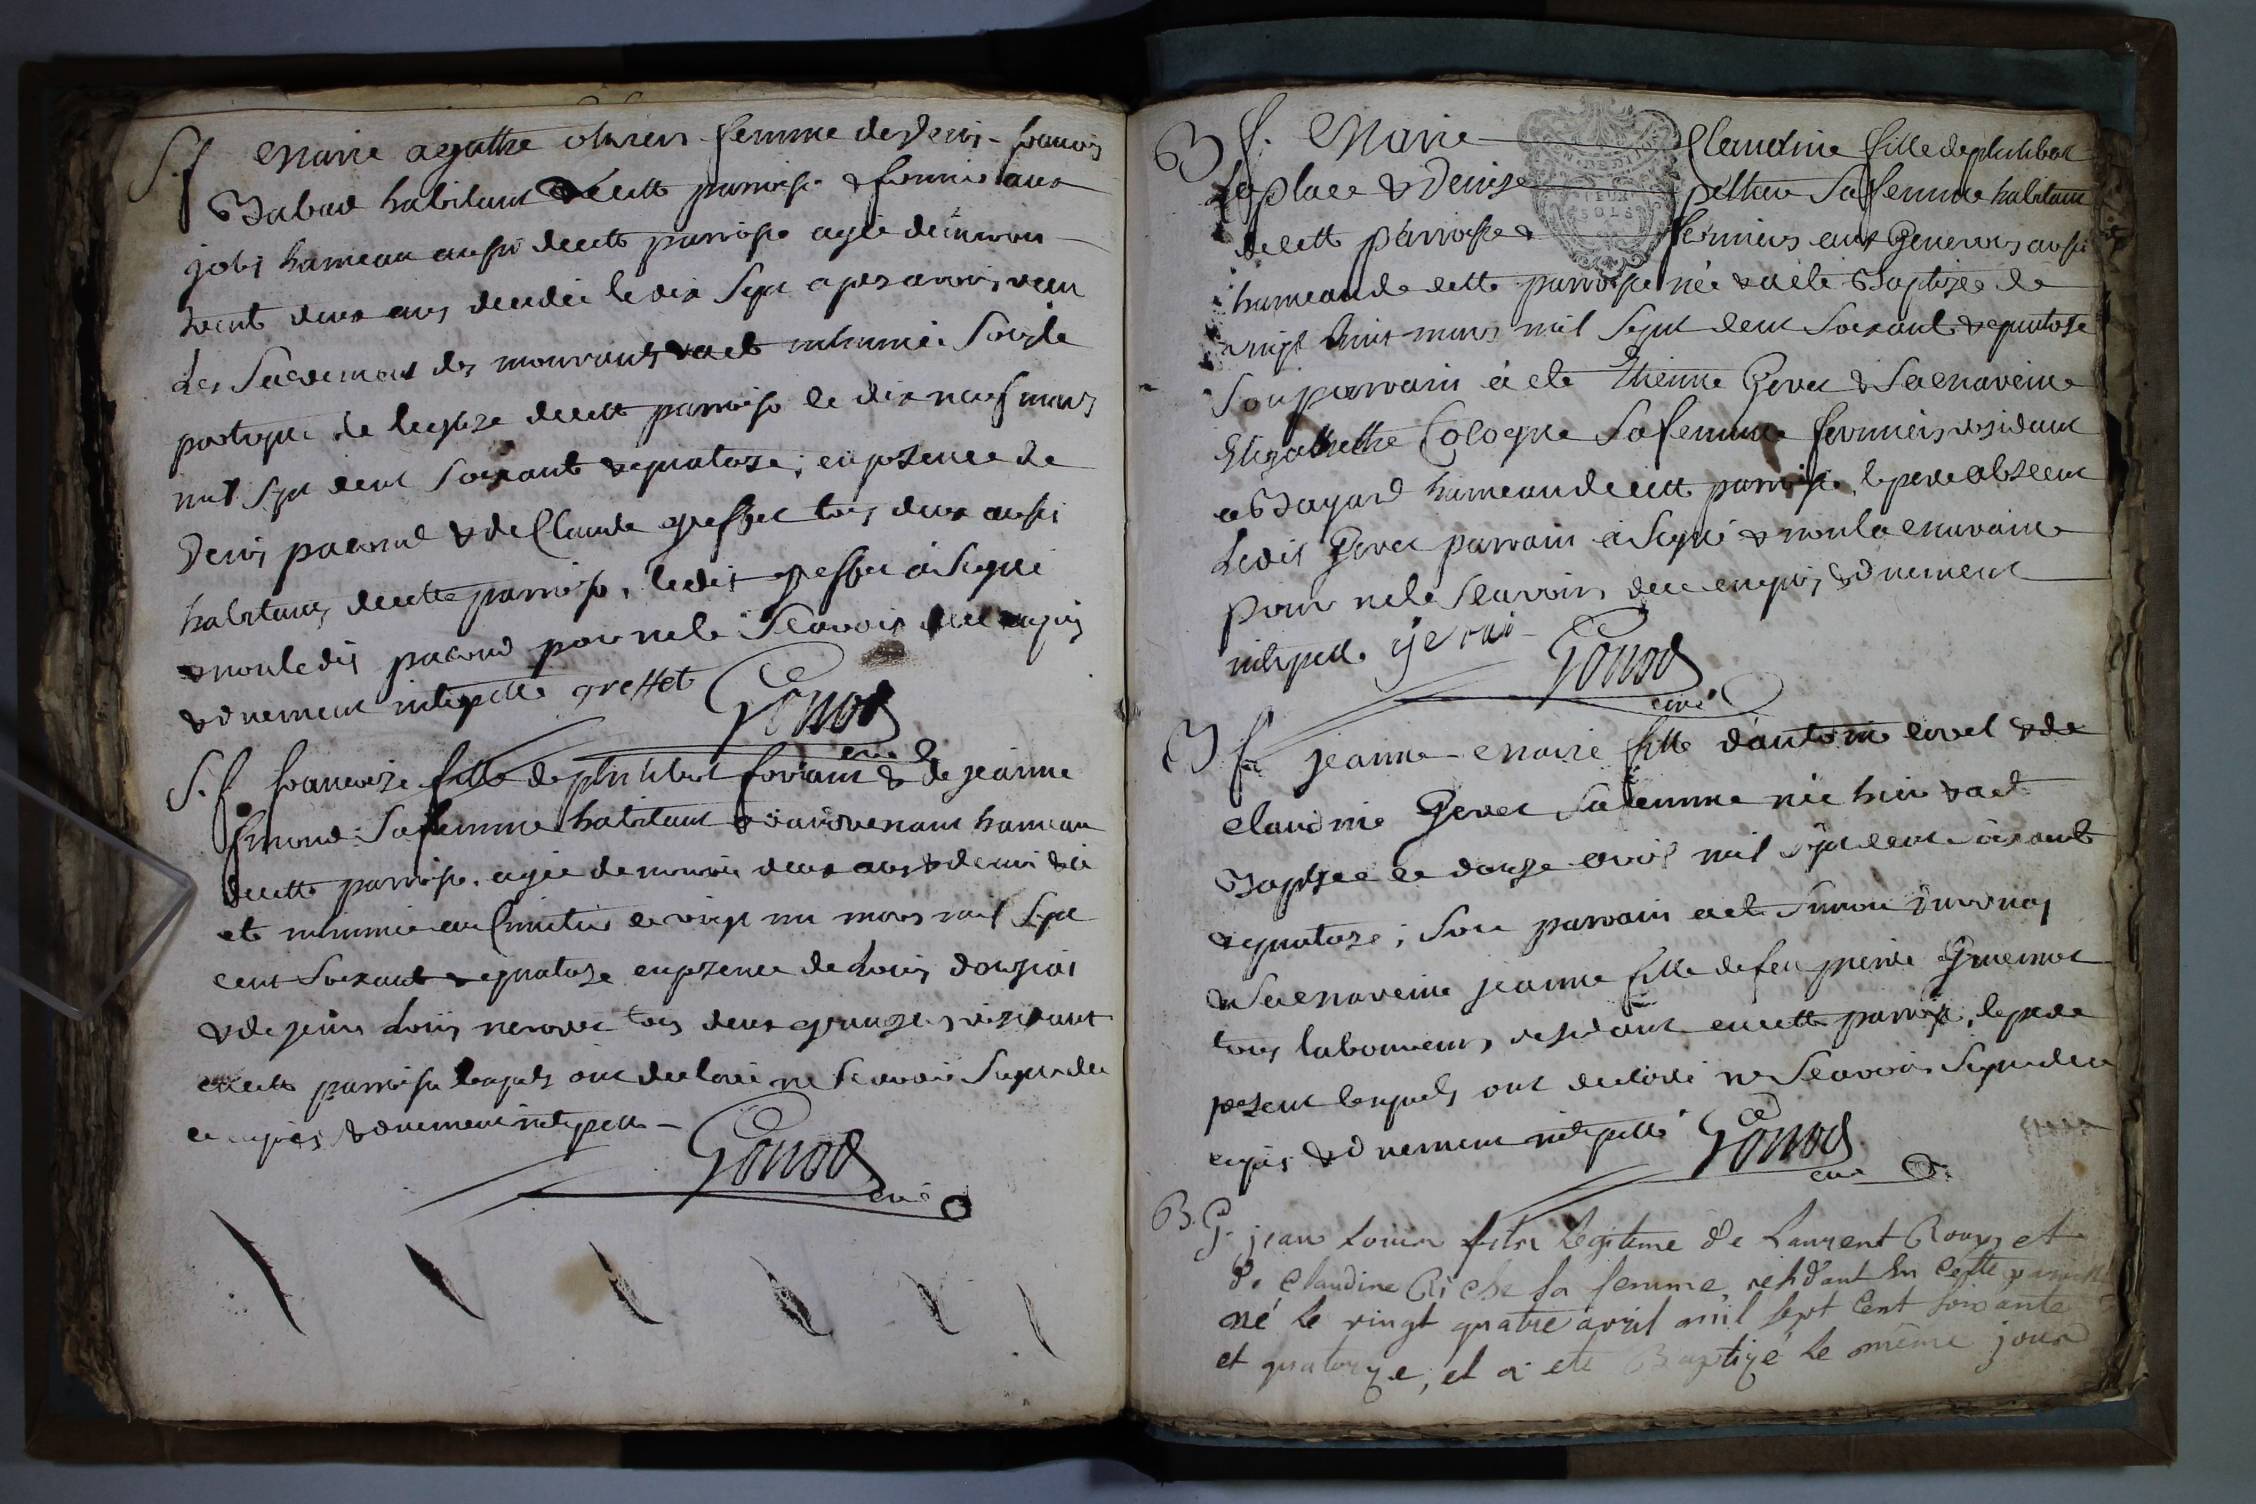 S. f Marie agathe femme de Denis francois
Babad habitant de cette parroisse & fermier aux
jolis hameau aussi de cette parroisse agée denviron
trente deux ans decedée le dix sept apres avoir receu
Les Sacremens des mourants & a eté inhumée Sous le
portique de leglise de cette parroisse le dix neuf mars
mil sept cent soixante & quatorze; en presence de
Denis pacoud & de Claude greffet tous deux aussi
habitans de cette parroisse, ledit greffet à Signé
& non ledit pacoud pour ne le Scavoir de ce enquis
& dument interpellé greffet Gonod
curé
S. f. francoise fille de philibert forrain & de jeanne
Simond Sa femme habitant hameau
de cette parroisse, agée denviron deux ans & demi & à
eté inhumée au Cimetier le vingt un mars mil Sept
cent soixante & quatorze en presence de Louis
& de jean Louis tous deux grangers residant
en cette parroisse lesquels ont declaré ne Scavoir Signer de ce
enquis & dument interpellé Gonod
curé
B f. Marie Claudine fille de philibert
Laplace & Denise sa femme habitant
de cette parroisse & fermiers aux aussi
hameau de cette parroisse née & a eté Baptisée le
vingt huit mars mil Sept cent Soixante & quatorze
Son parrain à eté Etienne Gevet & Sa maraine
Elizabethe Cologne Sa femme fermiers residant
a Bayard hameau de cette parroisse, le pere absent
Ledit Gevet parrain à Signé & non la maraine
pour ne le Scavoir de ce enquis & dument
interpellé Gonod
curé
B f. jeanne marie fille d'antoine & de
claudine Gevet Sa femme née hier & a eté
Baptisée le douze avril mil Sept cent Soixante
& quatorze; Son parrain a eté Simon
& Sa maraine jeanne fille de feu pierre
tous laboureurs residant en cette parroisse, le pere
present lesquels ont declaré ne Scavoir Signer de ce
enquis & dument interpellé Gonod
curé
B. G. jean Louis fils Legitime de Laurent et
de Claudine sa femme, residant en cette paroisse
né le vingt quatre avril mil sept Cent soixante
et quatorze, et a eté Baptizé le même jour